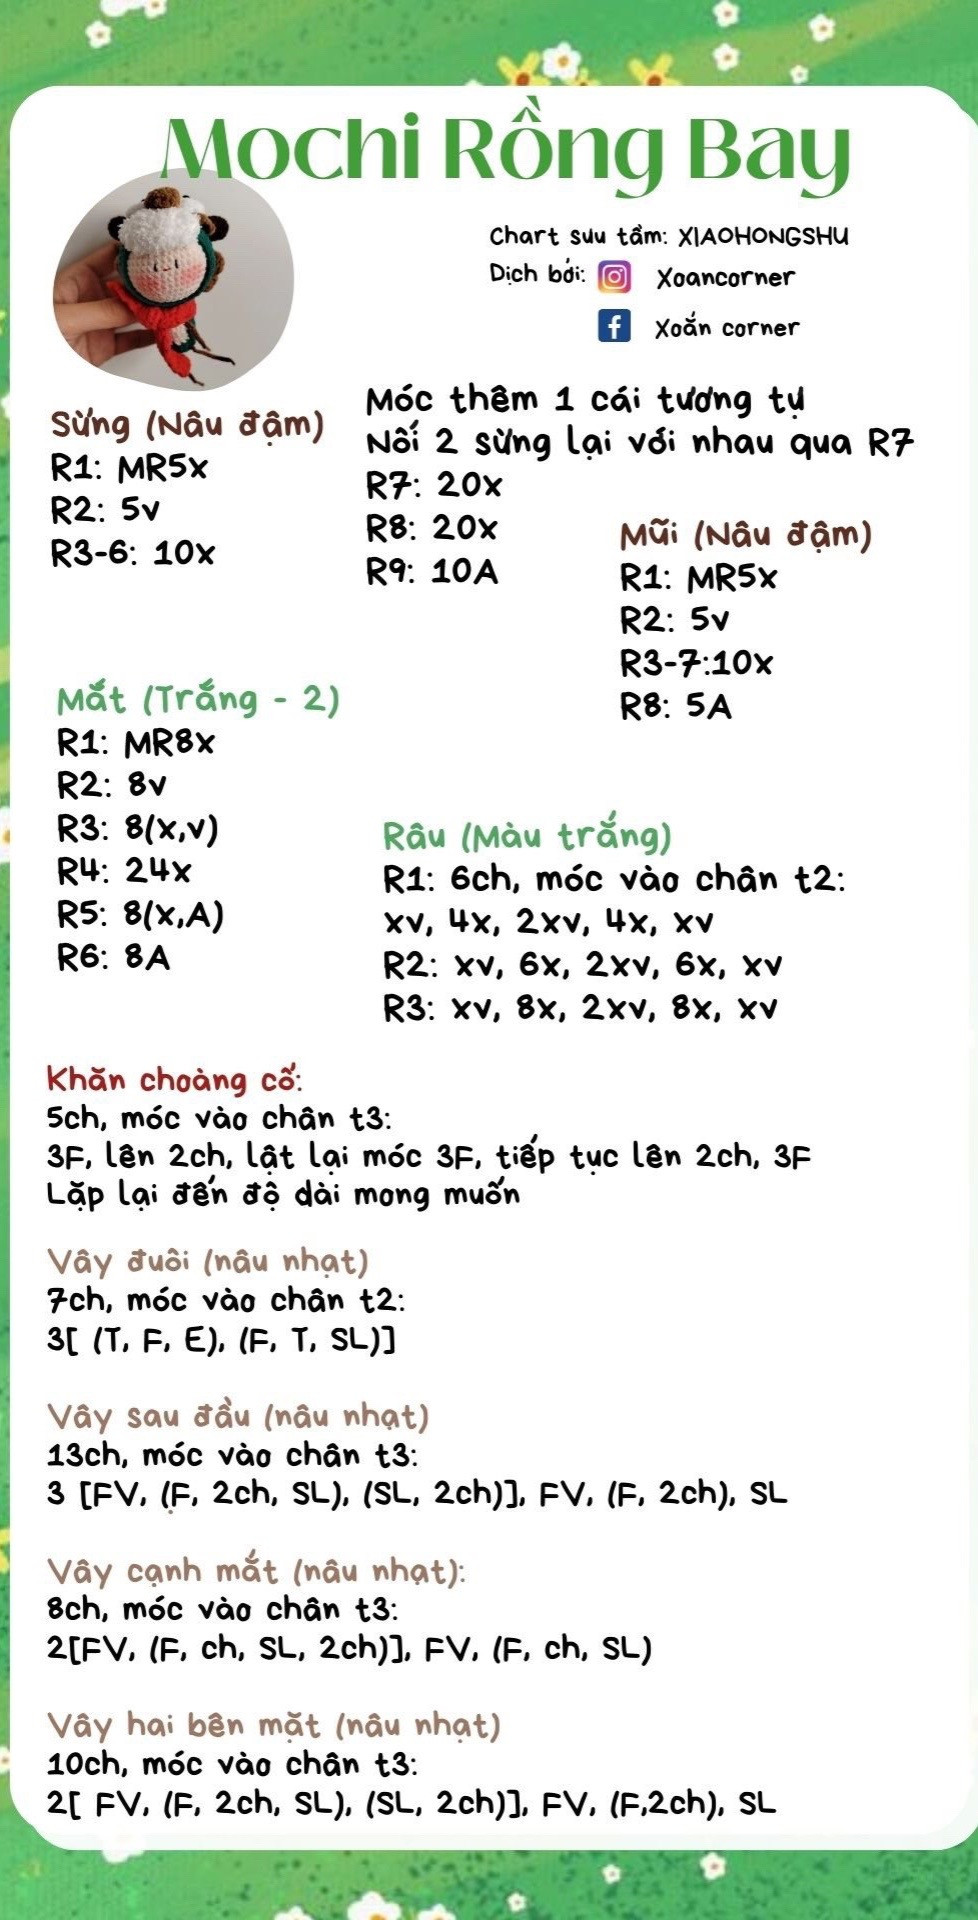 Mochi Rồng Bay
Chart sưu tầm: XIAOHONGSHU
Dịch bởi: Xoancorner
Xoắn corner
Sừng (Nâu đậm)
R1: MR5x
R2: 5v
R3-6: 10x
Móc thêm 1 cái tương tự
Nối 2 sừng lại với nhau qua R7
R7: 20x
R8: 20x
R9: 10A
Mũi (Nâu đậm)
R1: MR5x
R2: 5v
R3-7:10x
R8: 5A
Mắt (Trắng - 2)
R1: MR8x
R2: 8v
R3: 8(x,v)
R4: 24x
R5: 8(x,A)
R6: 8A
Râu (Màu trắng)
R1: 6ch, móc vào chân t2:
xv, 4x, 2xv, 4x, xv
R2: xv, 6x, 2xv, 6x, xv
R3: xv, 8x, 2xv, 8x, xv
Khăn choàng cổ:
5ch, móc vào chân t3:
3F, lên 2ch, lật lại móc 3F, tiếp tục lên 2ch, 3F
Lặp lại đến độ dài mong muốn
Vây đuôi (nâu nhạt)
7ch, móc vào chân t2:
3[ (T, F, E), (F, T, SL)]
Vây sau đầu (nâu nhạt)
13ch, móc vào chân t3:
3 [FV, (F, 2ch, SL), (SL, 2ch)], FV, (F, 2ch), SL
Vây cạnh mắt (nâu nhạt):
8ch, móc vào chân t3:
2[FV, (F, ch, SL, 2ch)], FV, (F, ch, SL)
Vây hai bên mặt (nâu nhạt)
10ch, móc vào chân t3:
2[ FV, (F, 2ch, SL), (SL, 2ch)], FV, (F,2ch), SL